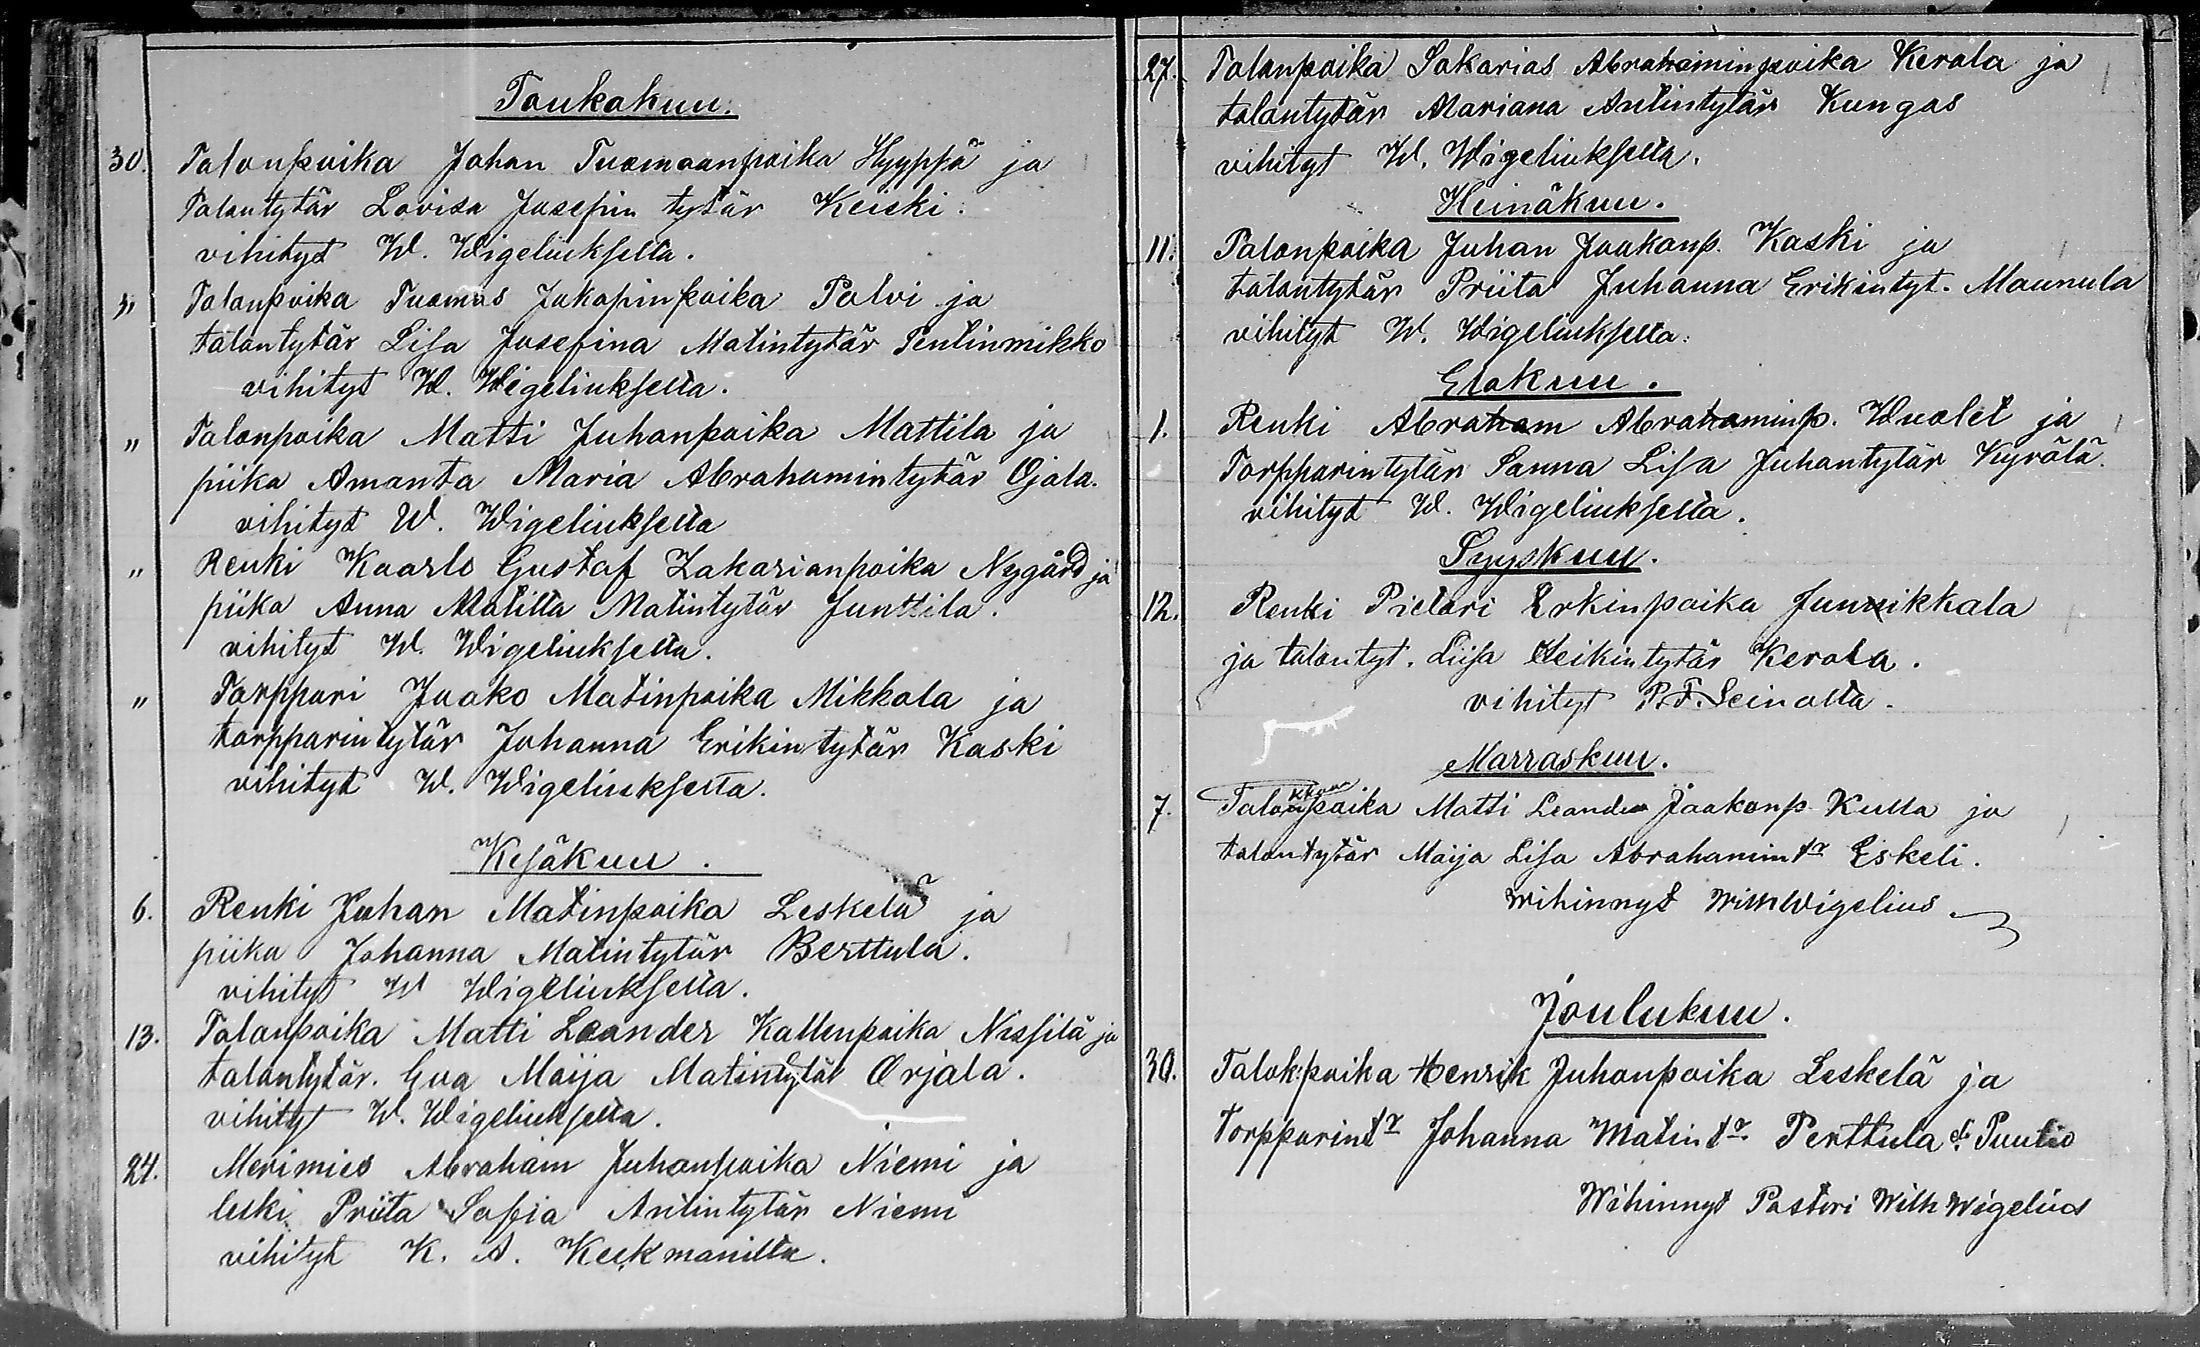 Toukokuu.
30. Talonpoika Johan Tuomaanpoika Hyyppä ja
Talontytär Lovisa Josefin tytär Keiski.
vihityt W. Wigeliukselta.
" Talonpoika Tuomas Jakopinpoika Palvi ja
talontytär Lisa Josefina Matintytär Pentinmikko
vihityt W. Wigeliukselta.
" Talonpoika Matti Juhanpoika Mattila ja
piika Amanta Maria Abrahamintytär Ojala.
vihityt W. Wigeliukselta
" Renki Kaarlo Gustaf Zakarianpoika Nygård ja
piika Anna Matilta Matintytär Junttila.
vihityt W. Wigeliukselta.
" Torppari Jaako Matinpoika Mikkola ja
torpparintytär Johanna Erikintytär Kaski
vihityt W. Wigeliukselta.
Kesäkuu.
6. Renki Juhan Matinpoika Leskelä ja
piika Johanna Matintytär Berttula.
vihityt W Wigeliukselta.
13. Talonpoika Matti Leander Kallenpoika Nissilä ja
talontytär. Eva Maija Matintytär Orjala.
vihityt W. Wigeliukselta.
24. Merimies Abraham Juhanpoika Niemi ja
leski Priita Sofia Antintytär Niemi
vihityt K. A. Keckmanilta.
27. Talonpoika Sakarias Abrahaminpoika Kerola ja
talontytär Mariana Antintytär Kungas
vihityt W. Wigeliukselta.
Heinäkuu.
11. Talonpoika Juhan Jaakonp. Kaski ja
talontytär Priita Juhanna Erikintyt. Maunula
vihityt W. Wigeliukselta.
Elokuu.
1. Renki Abraham Abrahaminp. Wuolet ja
Torpparintytär Sanna Lisa Juhantytär Kyrölä.
vihityt W. Wigeliukselta.
Syyskuu.
12. Renki Pietari Erkinpoika Junnikkala
ja talontyt. Liisa Heikintytär Kerola.
vihityt P. F. Seinolta.
Marraskuu.
7. Talonpoika Matti Leander Jaakonp Kulla ja
talontytär Maija Lisa Abrahamintr Eskeli.
wihinnyt Wilh Wigelius
Joulukuu.
30. Talokpoika Henrik Juhonpoika Leskelä ja
torpparintr Johanna Matintr Perttula l. Puutio
Wihinnyt Pastori Wilh Wigelius